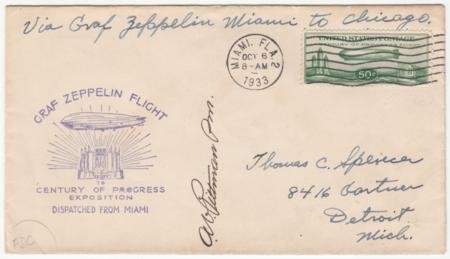 Via Graf Zeppelin Miami to Chicago.
MIAMI, FLA. 2
OCT 6
8-AM
1933
UNITED STATES POSTAGE
A CENTURY OF PROGRESS FLIGHT
50c
GRAF ZEPPELIN FLIGHT
TO
CENTURY OF PROGRESS
EXPOSITION
DISPATCHED FROM MIAMI
Pittman P.m.
Thomas C. Spencer
8416 Cartner
Detroit
Mich.
FDC